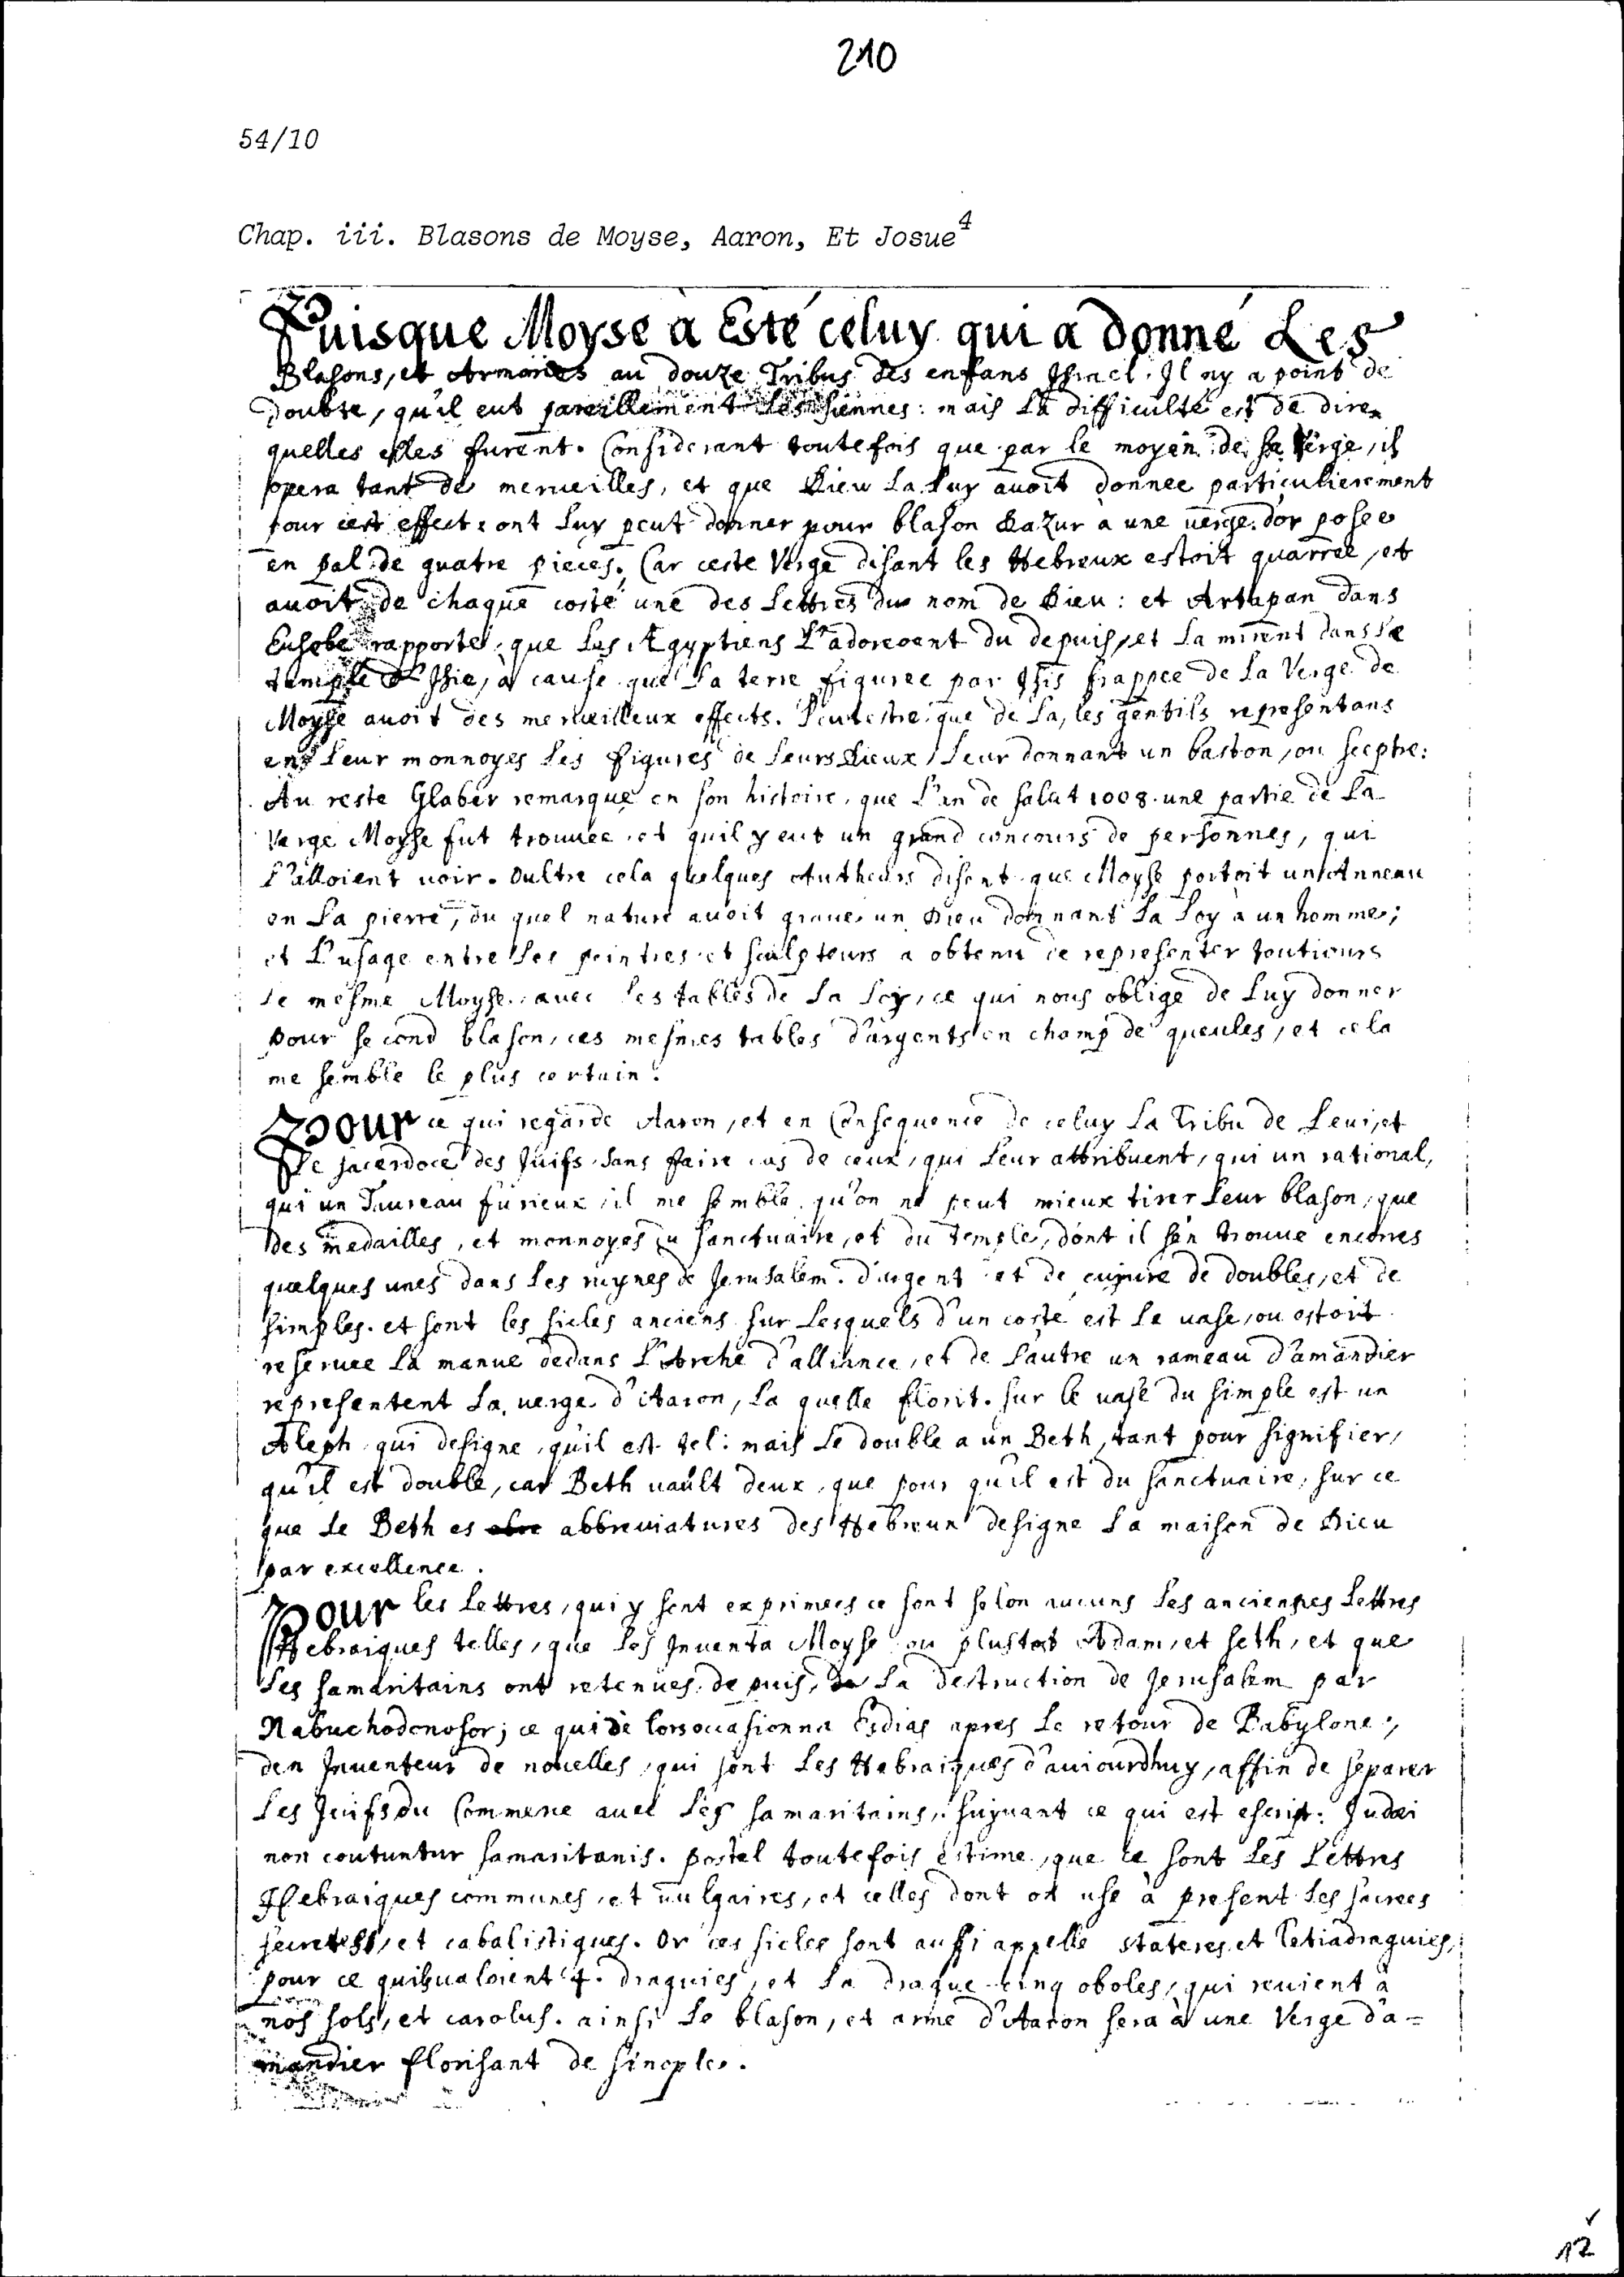 210
54/10
Chap. iii. Blasons de Moyse, Aaron, Et Josue4
Puisque Moyse a Esté celuy qui a donné Les
Blasons, et Armoiries au douze Tribus des enfans Israel. Il ny a point de
doubte, qu'il eut pareillement les siennes: mais la difficulté est de dire
quelles elles furent. Considerant toutefois que par le moyen de sa verge, il
opera tant de merueilles, et que Dieu la luy auoit donnee particulierement
pour cest effect: ont luy peut donner pour blason d'azur à une uerge d'or posee
en pal de quatre pieces. Car ceste Verge disant les Hebreux estoit quarrée, et
auoit de chaque costé une des lettres du nom de Dieu: et Artapan dans
Eusebe rapporte, que les Ægyptiens l'adoreoent du depuis, et la mirent dans le
temple d'Isie, à cause que la terre figuree par Isis frappee de la Verge de
Moyse auoit des merueilleux effects. Peutestre que de la, les gentils representans
en leur monnoyes les figures de leurs Dieux, leur donnant un baston, ou sceptre:
Au reste Glaber remarque en son histoire, que l'an de salut 1008. une partie de la
Verge Moyse fut trouuée, et quil y eut un grand concours de personnes, qui
l'alloient uoir. Oultre cela quelques Autheurs disent que Moyse portoit un Anneau
en la pierre, du quel nature auoit graué un Dieu donnant la loy à un homme;
et l'usage entre les peintres et sculpteurs a obtenu de representer toutiours
le mesme Moyse auec les tables de la loy, ce qui nous oblige de luy donner
pour second blason, ces mesmes tables d'argents en champ de gueules, et cela
me semble le plus certain.
Pour ce qui regarde Aaron, et en Consequence de celuy la Tribu de Leui, et
le sacerdoce des Juifs sans faire cas de ceux, qui leur attribuent, qui un rational,
qui un Taureau furieux, il me semble qu'on ne peut mieux tirer leur blason, que
des medailles, et monnoyes du sanctuaire, et du temple, dont il s'en trouue encores
quelques unes dans les ruynes de Jerusalem. d'argent et de cuyure de doubles, et de
simples. et sont les sicles anciens sur lesquels d'un costé est le uase, ou estoit
reseruee la manne dedans l'Arche d'alliance, et de l'autre un rameau d'amandier
representent la uerge d'Aaron, la quelle florit. sur le uase du simple est un
Aleph qui designe, qu'il est tel: mais le double a un Beth, tant pour signifier,
qu'il est double, car Beth uault deux, que pour qu'il est du sanctuaire, sur ce
que le Beth es abbreuiatures des Hebreux designe la maison de Dieu
par excellence.
Pour les lettres, qui y sont exprimees ce sont selon aucuns les anciennes lettres
Hebraiques telles, que les Inuenta Moyse ou plustost Adam, et Seth, et que
les samaritains ont retenues depuis, de la destruction de Jerusalem par
Nabuchodonosor; ce qui de lors occasionna Esdras apres le retour de Babylone,
den Inuenteur de nouelles, qui sont les Hebraiques d'auiourdhuy, affin de separer
les Juifs du Commerce auec les samaritains, suyuant ce qui est escript: Judæi
non coutuntur samaritanis. postel toutefois estime, que ce sont les lettres
Hebraiques communes, et uulgaires, et celles dont on use à present les sacrees
secretes, et cabalistiques. Or ces sicles sont aussi appelle stateres et Tetradragmes,
pour ce quils ualoient 4. dragmes, et la dragme cinq oboles, qui reuient à
nos sols, et carolus. ainsi le blason, et arme d'Aaron sera à une Verge d'a=
mandier florisant de sinople.
12